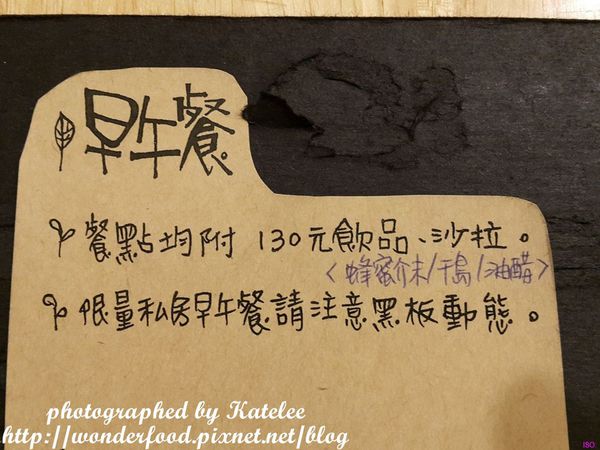 早午餐
餐點均附 130元飲品、沙拉。
<蜂蜜介末/千島/油醋>
限量私房早午餐請注意黑板動態。
photographed by Katelee
http://wonderfood.pixnet.net/blog
ISO